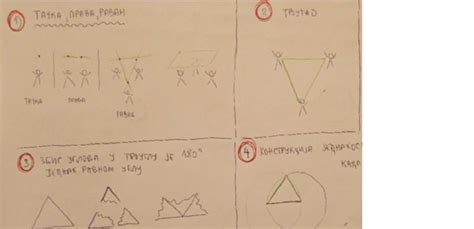 1) ТАЧКА, ПРАВА, РАВАН
ТАЧКА ПРАВА РАВАН
2 ТРУГАО
3 ЗБИР УГЛОВА У ТРОУГЛУ ЈЕ 180°
ЈЕДНАК РАВНОМ УГЛУ
4 КОНСТРУКЦИЈА ЈЕДНАКОС